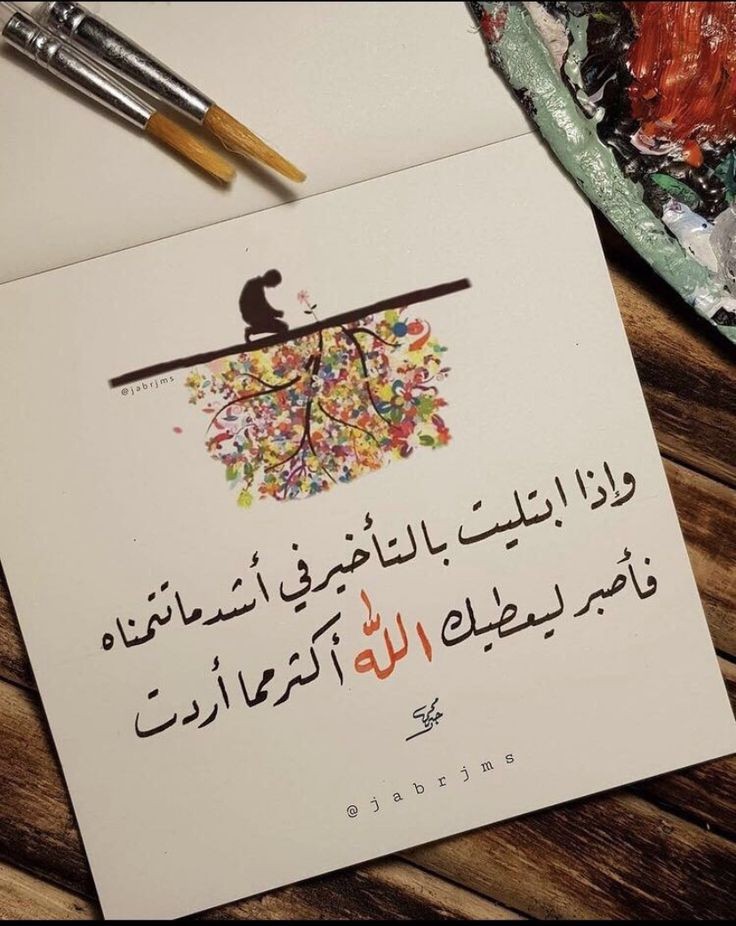 @jabrjms
وإذا ابتليت بالتأخير في أشد ما تتمناه
فأصبر ليعطيك الله أكثر مما أردت
@jabrjms